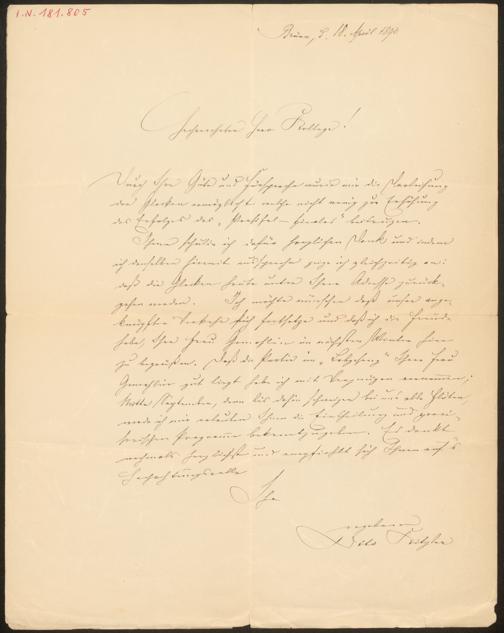 I.N. 181.805
Brünn, d. 10. April 1890
Hochverehrter Herr Kollege!
Durch Ihre Güte und Fürsprache wurde mir die
der Glocken ermöglicht welche nicht wenig zur Erhöhung
des Erfolges des „Parsifal-Finales" beitrugen.
Ihnen schulde ich dafür herzlichen Dank und indem
ich denselben hiermit ausspreche zeige ich gleichzeitig an:
daß die Glocken heute unter Ihrer Adresse zurück-
gehen werden. Ich möchte wünschen daß unser ange-
knüpfter Verkehr sich fortsetze und daß ich die Freude
habe, Ihre Frau Gemahlin im nächsten Winter hier
zu begrüßen. Daß die Partie im Ihrer Frau
Gemahlin gut liegt habe ich mit Vergnügen vernommen;
Mitte September, denn bis dahin bei uns alle
werde ich mir erlauben Ihnen die Eintheilung und
Programme bekanntzugeben. Es dankt
nochmals herzlichst und empfiehlt sich Ihnen auf's
Hochachtungsvollste
Ihr
ergebener
Otto Kitzler